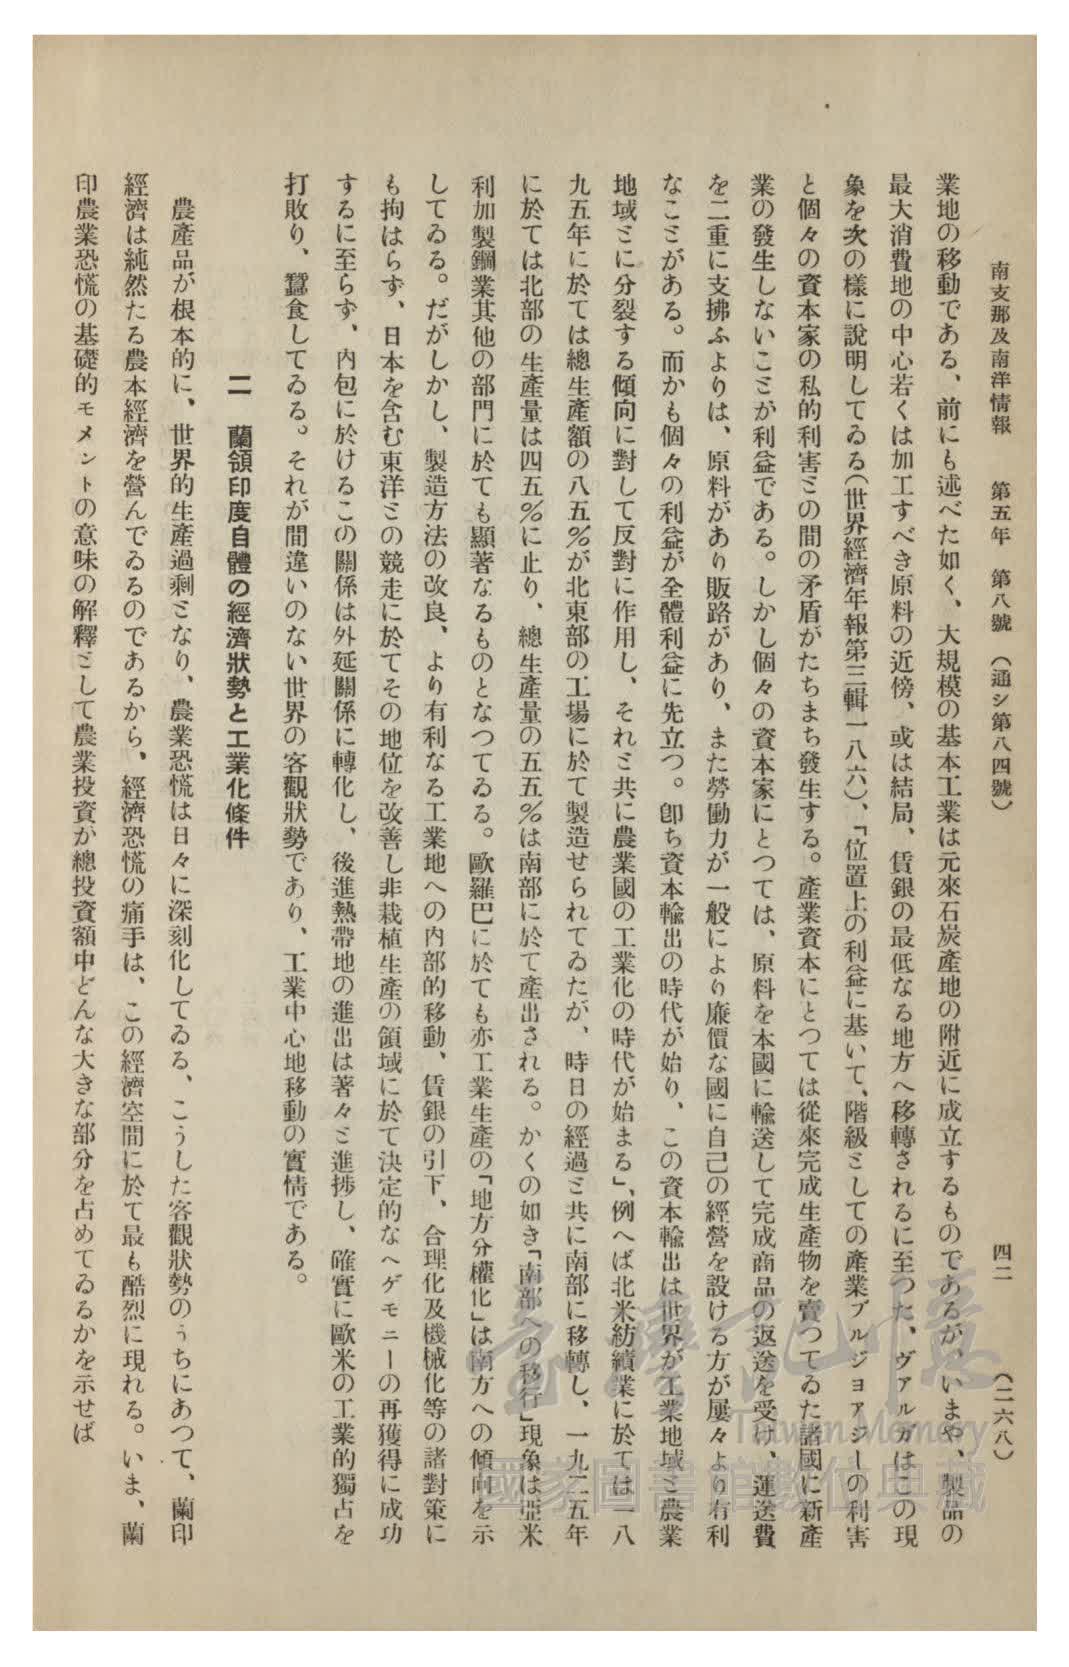 南支那及南洋情報　第五年　第八號　（通シ第八四號）　四二　（二六八）
業地の移動である、前にも述べた如く、大規模の基本工業は元來石炭產地の附近に成立するものであるが、いまや、製品の
最大消費地の中心若くは加工すべき原料の近傍、或は結局、賃銀の最低なる地方へ移轉されるに至つた、ヴァルガはこの現
象を次の様に說明してゐる（世界經濟年報第三輯一八六）、「位置上の利益に基いて、階級としての產業ブルジョアジーの利害
と個々の資本家の私的利害との間の矛盾がたちまち發生する。產業資本にとつては從來完成生產物を賣つてゐた諸國に新產
業の發生しないことが利益である。しかし個々の資本家にとつては、原料を本國に輸送して完成商品の返送を受け、運送費
を二重に支拂ふよりは、原料があり販路があり、また勞働力が一般により廉價な國に自己の經營を設ける方が屢々より有利
なことがある。而かも個々の利益が全體利益に先立つ。卽ち資本輸出の時代が始り、この資本輸出は世界が工業地域と農業
地域とに分裂する傾向に對して反對に作用し、それと共に農業國の工業化の時代が始まる」、例へば北米紡績業に於ては一八
九五年に於ては總生產額の八五％が北東部の工場に於て製造せられてゐたが、時日の經過と共に南部に移轉し、一九二五年
に於ては北部の生產量は四五％に止り、總生產量の五五％は南部に於て產出される。かくの如き「南部への移行」現象は亞米
利加製鋼業其他の部門に於ても顯著なるものとなつてゐる。歐羅巴に於ても亦工業生產の「地方分權化」は南方への傾向を示
してゐる。だがしかし、製造方法の改良、より有利なる工業地への內部的移動、賃銀の引下、合理化及機械化等の諸對策に
も拘はらず、日本を含む東洋との競走に於てその地位を改善し非栽植生產の領域に於て決定的なヘゲモニーの再獲得に成功
するに至らず、內包に於けるこの關係は外延關係に轉化し、後進熱帶地の進出は著々と進捗し、確實に歐米の工業的獨占を
打敗り、蠶食してゐる。それが間違いのない世界の客觀狀勢であり、工業中心地移動の實情である。
二　蘭領印度自體の經濟狀勢と工業化條件
農產品が根本的に、世界的生產過剩となり、農業恐慌は日々に深刻化してゐる、こうした客觀狀勢のうちにあつて、蘭印
經濟は純然たる農本經濟を營んでゐるのであるから、經濟恐慌の痛手は、この經濟空間に於て最も酷烈に現れる。いま、蘭
印農業恐慌の基礎的モメントの意味の解釋として農業投資が總投資額中どんな大きな部分を占めてゐるかを示せば
臺灣記憶
Taiwan Memory
國家圖書館數位典藏